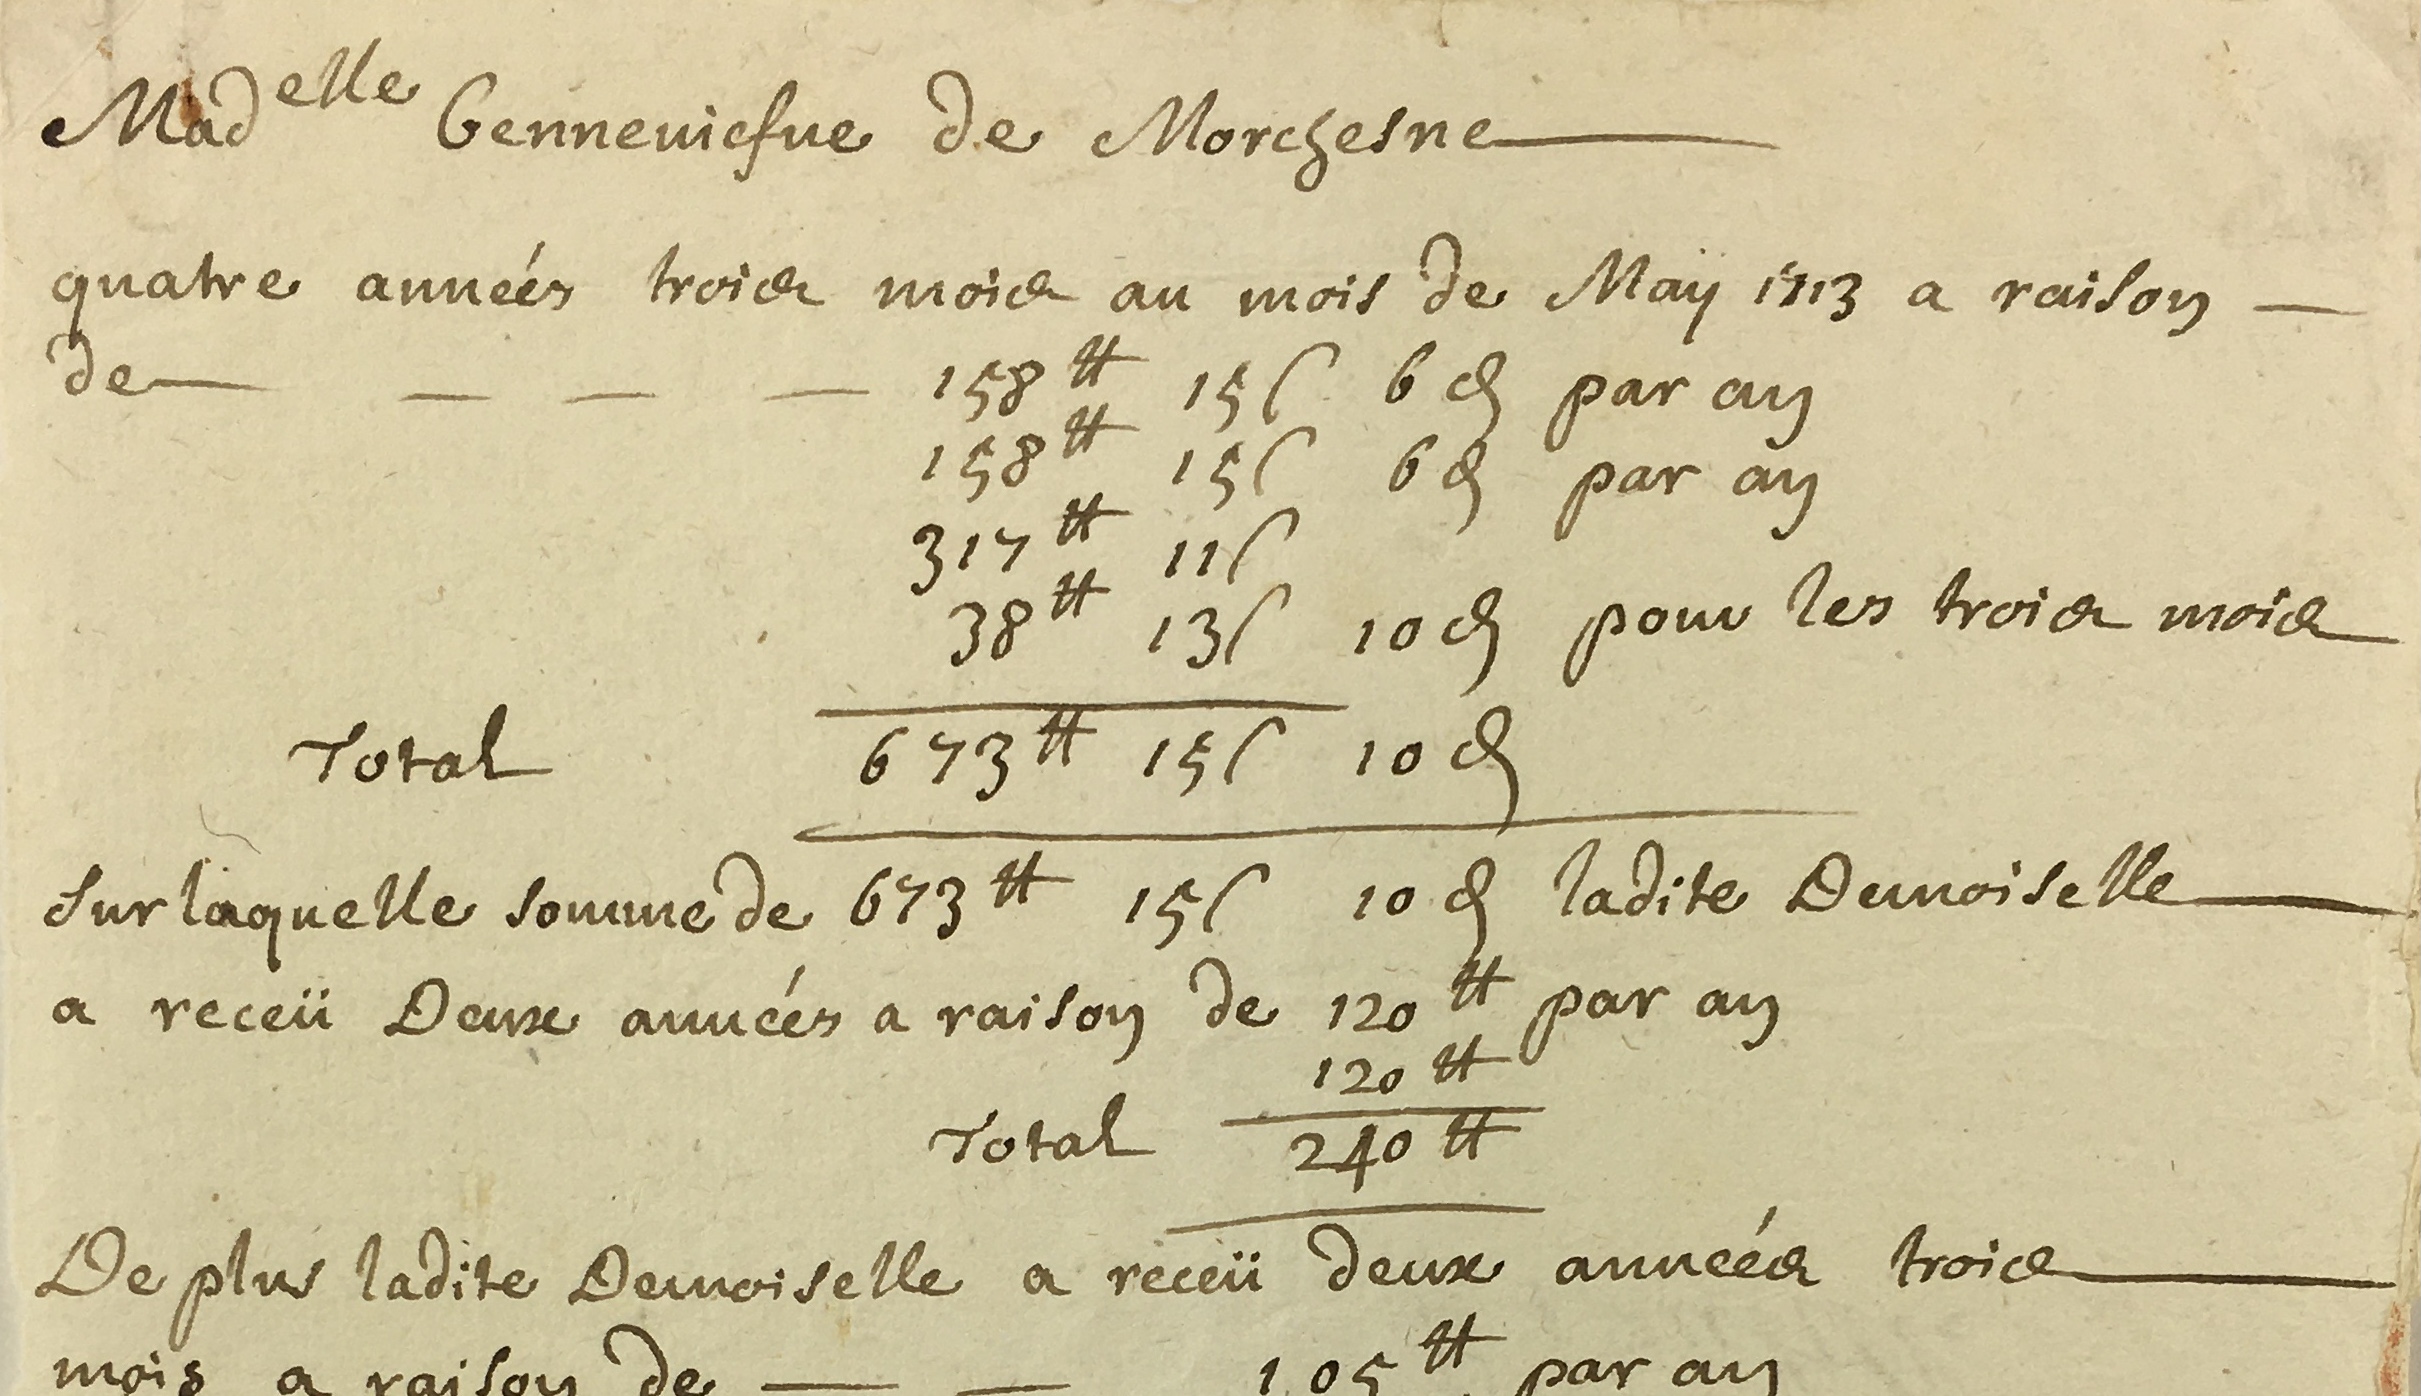 Madelle Genneviefue de Morchesne
quatre années trois mois au mois de May 1713 a raison —
de — — — — 158 ₶ 15 s 6 d par an
158 ₶ 15 s 6 d par an
317 ₶ 11 s
38 ₶ 13 s 10 d pour les trois mois
Total 673 ₶ 15 s 10 d
Sur laquelle somme de 673 ₶ 15 s 10 d ladite Demoiselle
a receü Deux années a raison de 120 ₶ par an
120 ₶
Total 240 ₶
De plus ladite Demoiselle a receü deux années trois
mois a raison de — — 105 ₶ par an